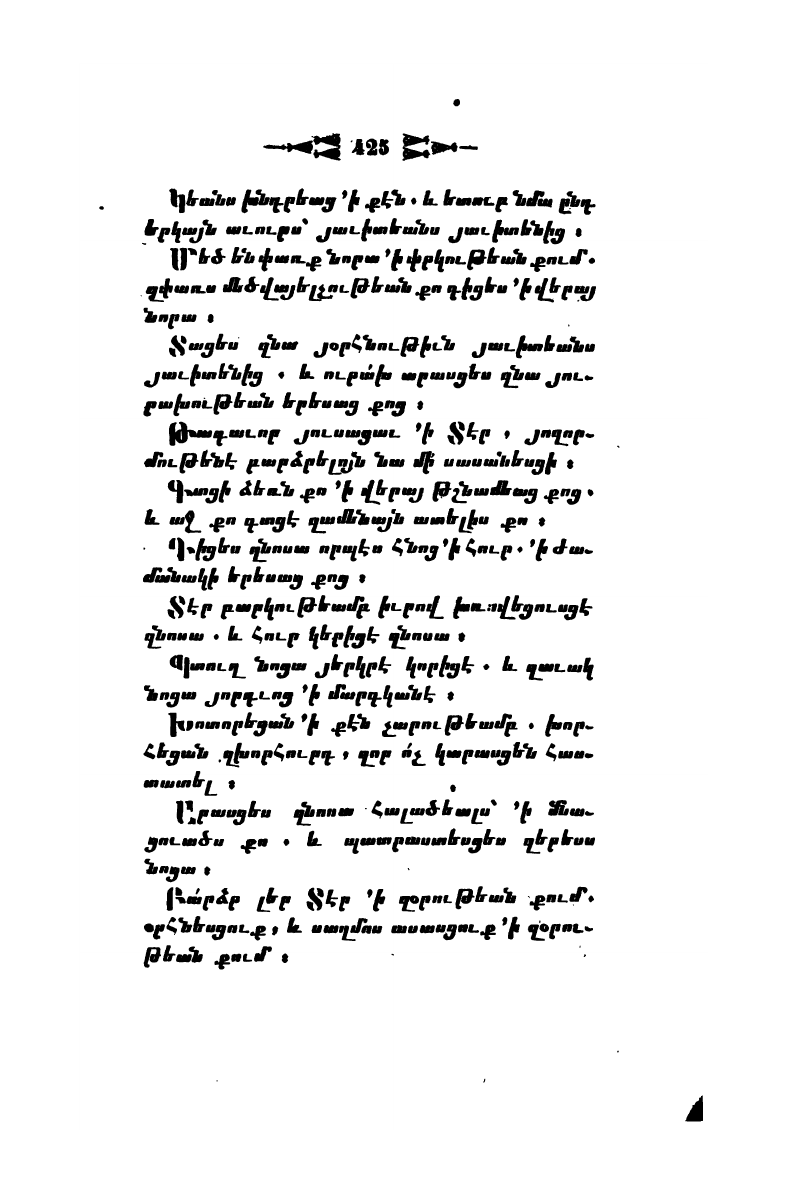 425
Կեանս խնդրեաց ՚ի քէն. և ետուր նմա ընդ
երկայն աւուրս՝ յաւիտեանս յաւիտենից ։
Մեծ են փառք նորա ՚ի փրկութեան քում.
զփառս մեծվայելչութեան քո դիցես ՚ի վերայ
նորա ։
Տացես զնա յօրհնութիւն յաւիտեանս
յաւիտենից . և ուրախ արասցես զնա յու-
րախութեան երեսաց քոց ։
Թագաւոր յուսացաւ ՚ի Տէր , յողոր-
մութենէ բարձրելոյն նա մի սասանեսցի ։
Գտցի ձեռն քո ՚ի վերայ թշնամեաց քոց.
և աջ քո գտցէ զամենայն ատելիս քո ։
Դիցես զնոսա որպէս հնոց ՚ի հուր. ՚ի ժա-
մանակի երեսաց քոց ։
Տէր բարկութեամբ իւրով խռովեցուսցէ
զնոսա . և հուր կերիցէ զնոսա ։
Պտուղ նոցա յերկրէ կորիցէ . և զաւակ
նոցա յորդւոց ՚ի մարդկանէ ։
Խոտորեցան ՚ի քէն չարութեամբ . խոր-
հեցան զխորհուրդ , զոր ո՛չ կարասցեն հաս-
տատել ։
Արասցես զնոսա հալածեալս՝ ՚ի մնա-
ցուածս քո . և պատրաստեսցես զերեսս
նոցա ։
Բա՛րձր լեր Տէր ՚ի զօրութեան քում.
օրհնեսցուք , և սաղմոս ասասցուք ՚ի զօրու-
թեան քում ։